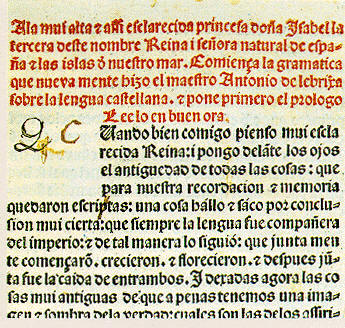 Ala mui alta ⁊ assi esclarecida princesa doña Isabel la
tercera deste nombre Reina i señora natural de espa-
ña ⁊ las islas d̃ nuestro mar. Comiença la gramatica
que nueva mente hizo el maestro Antonio de lebrixa
sobre la lengua castellana. ⁊ pone primero el prologo
Lee lo en buen ora.
C Uando bien comigo pienso mui escla
recida Reina: i pongo delãte los ojos
el antiguedad de todas las cosas: que
para nuestra recordacion ⁊ memoria
quedaron escriptas: una cosa hallo ⁊ sáco por conclu-
sion mui cierta: que siempre la lengua fue compañera
del imperio: ⁊ de tal manera lo siguió: que junta men
te començarõ. crecieron. ⁊ florecieron. ⁊ despues jũ
ta fue la caida de entrambos. I dexadas agora las co
sas mui antiguas de que a penas tenemos una ima-
gen ⁊ sombra dela verdad: cuales son las delos assiri